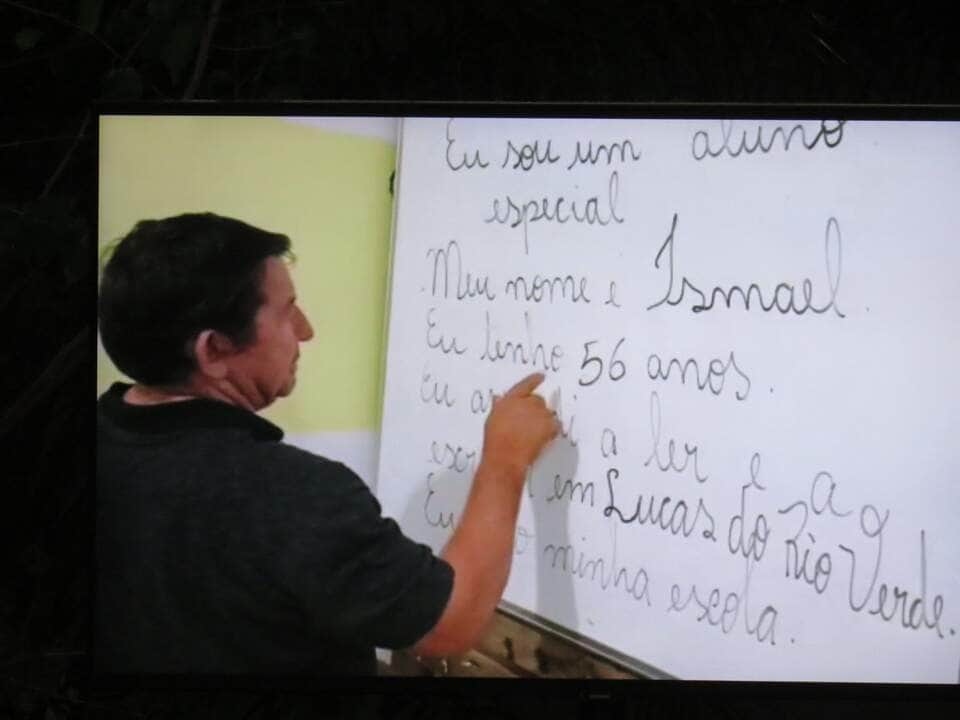 Eu sou um aluno
especial
Meu nome e Ismael.
Eu tenho 56 anos.
Eu a ler e a
em Lucas do Rio Verde.
Eu minha escola.